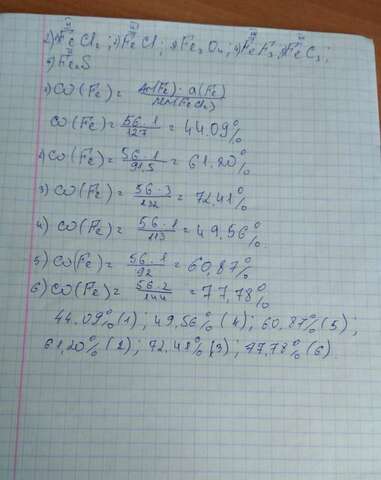 2) 1) FeCl₂; 2) FeCl; 3) Fe₃O₄; 4) FeF₃; 5) FeC₃;
6) Fe₂S
1) ω(Fe) = Ar(Fe)·a(Fe) / Mr(FeCl₂)
ω(Fe) = 56·1 / 127 = 44.09%
2) ω(Fe) = 56·1 / 91,5 = 61.20%
3) ω(Fe) = 56·3 / 232 = 72,41%
4) ω(Fe) = 56·1 / 113 = 49,56%
5) ω(Fe) = 56·1 / 92 = 60,87%
6) ω(Fe) = 56·2 / 144 = 77,78%
44.09% (1); 49,56% (4); 60,87% (5);
61,20% (2); 72,41% (3); 77,78% (6).